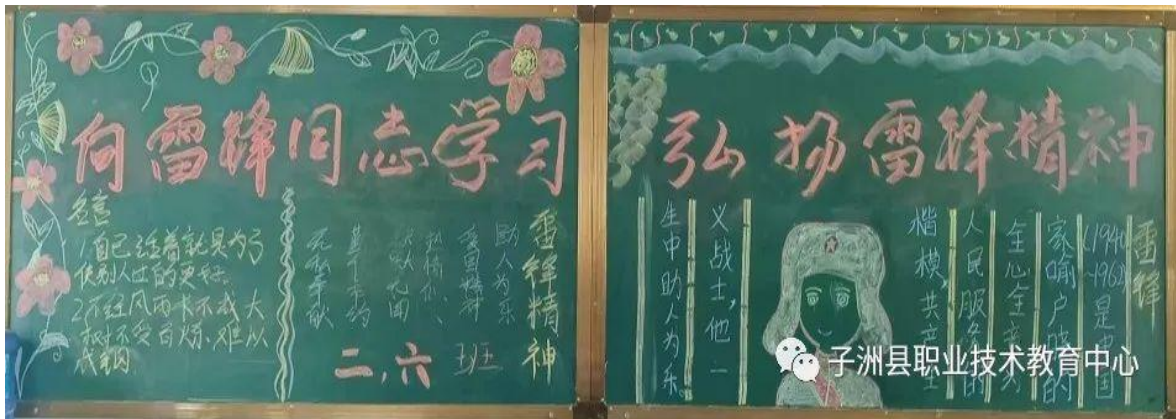 向雷锋同志学习
名言
1.自己活着就是为了
使别人过的更好。
2.不经风雨木不成大
树不受百炼难以
成钢
雷锋精神
助人为乐
爱国精神
默默无闻
勤俭节约
无私奉献
二,六班
弘扬雷锋精神
雷锋
(1940
~1962)是中国
家喻户晓的
全心全意为
人民服务的
楷模,共产主
义战士,他一
生中助人为乐。
子洲县职业技术教育中心